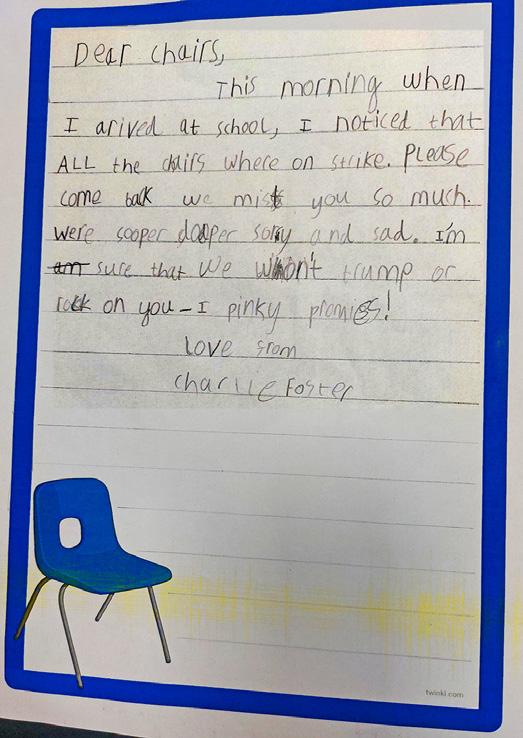 Dear chairs,
This morning when
I arived at school, I noticed that
ALL the chairs where on strike. Please
come back we mist you so much.
were sooper dooper sory and sad. I'm
am sure that we won't trump or
rock on you - I pinky promies!
Love from
Charlie Foster
twinkl.com